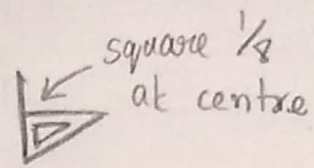 square 1/8
at centre